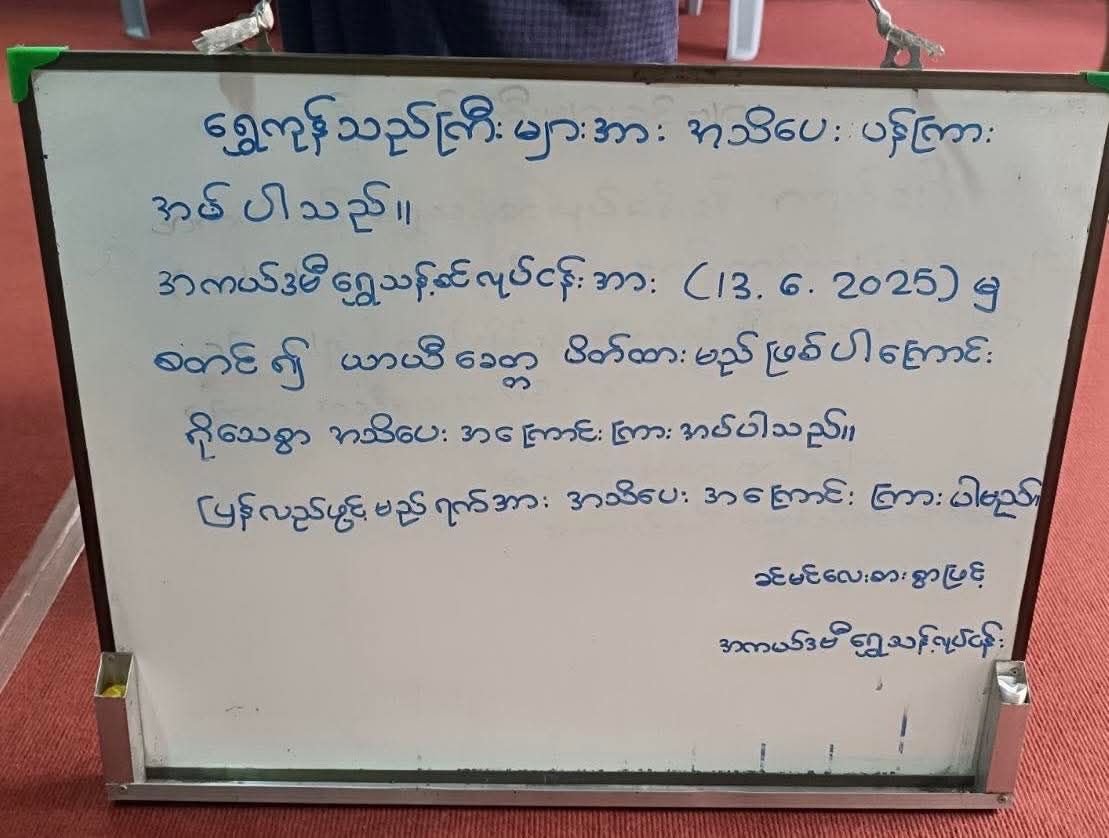 ရွှေကုန်သည်ကြီးများအား အသိပေး ပန်ကြား
အပ်ပါသည်။
အကယ်ဒမီရွှေသန့်စင်လုပ်ငန်းအား (13.6.2025) မှ
စတင်၍ ယာယီခေတ္တ ပိတ်ထားမည်ဖြစ်ပါကြောင်း
ရိုသေစွာ အသိပေး အကြောင်းကြားအပ်ပါသည်။
ပြန်လည်ဖွင့်မည်ရက်အား အသိပေး အကြောင်းကြားပါမည်။
ခင်မင်လေးစားစွာဖြင့်
အကယ်ဒမီရွှေသန့်လုပ်ငန်း